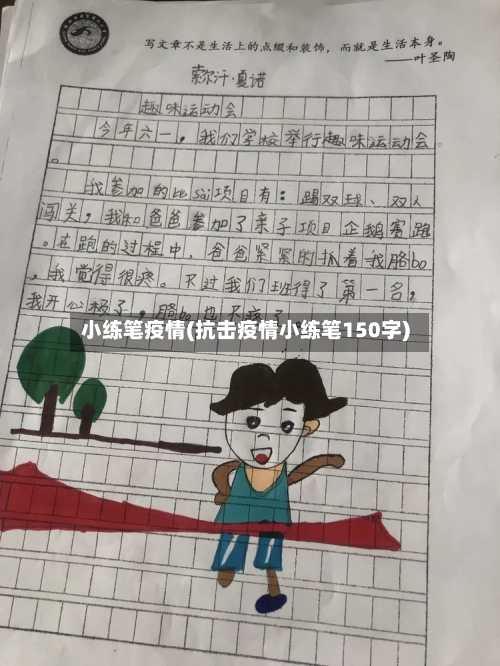 写文章不是生活上的点缀和装饰，而就是生活本身。
——叶圣陶
索尔汗·夏诺
趣味运动会
今年六一，我们学校举行趣味运动会
。
我参加的比sài项目有：踢双球、双人
闯关，我和爸爸参加了亲子项目企鹅赛跑
。在跑的过程中，爸爸紧紧的抓着我胳bo
，我觉得很疼。不过我们班得了第一名，
我开心极了，胳bo也不疼了
小练笔疫情(抗击疫情小练笔150字)